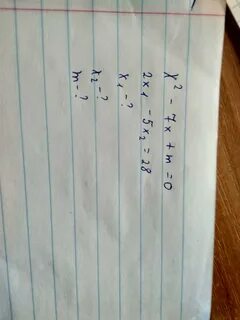 x² - 7x + m = 0
2x₁ - 5x₂ = 28
x₁ - ?
x₂ - ?
m - ?